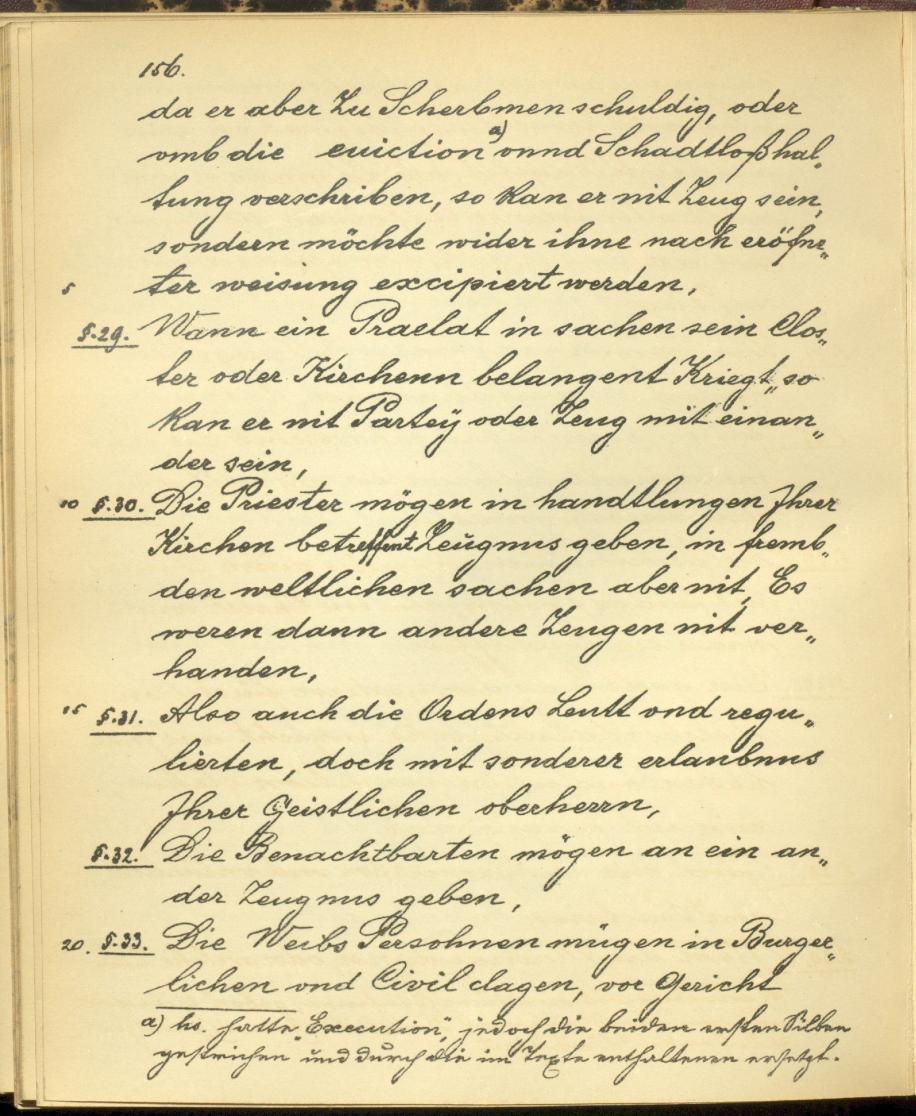 156.
da er aber Zu Scherbmen schuldig, oder
vmb die euiction a) vnnd Schadtloßhal„
tung verschriben, so kan er nit Zeug sein,
sondern möchte wider ihne nach eröfne„
5 ter weisung excipiert werden,
§.29. Wann ein Praelat in sachen sein Clos„
ter oder Kirchenn belangent Kriegt„ so
kan er nit Parteÿ oder Zeug mit einan„
der sein,
10 §.30. Die Priester mögen in handtlungen Jhrer
Kirchen betreffent Zeügnus geben, in fremb„
den weltlichen sachen aber nit, Es
weren dann andere Zeugen nit ver„
handen,
15 §.31. Also auch die Ordens Leutt vnd regu„
lierten, doch mit sonderer erlaubnus
Jhrer Geistlichen oberherrn,
§.32. Die Benachtbarten mögen an ein an„
der Zeugnus geben,
20. §.33. Die Weibs Persohnen mügen in Burger„
lichen vnd Civil clagen, vor Gericht
a) hs. hatte „Execution„, jedoch die beiden ersten Silben
gestrichen und durch die im Texte enthaltenen ersetzt.